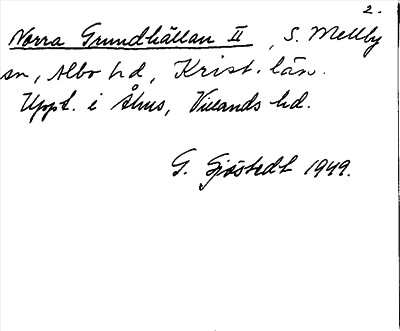 2.
Norra Grundhällan II, S. Mellby
sn, Albo hd, Krist. län.
Uppt. i Åhus, Villands hd.
G. Sjöstedt 1949.